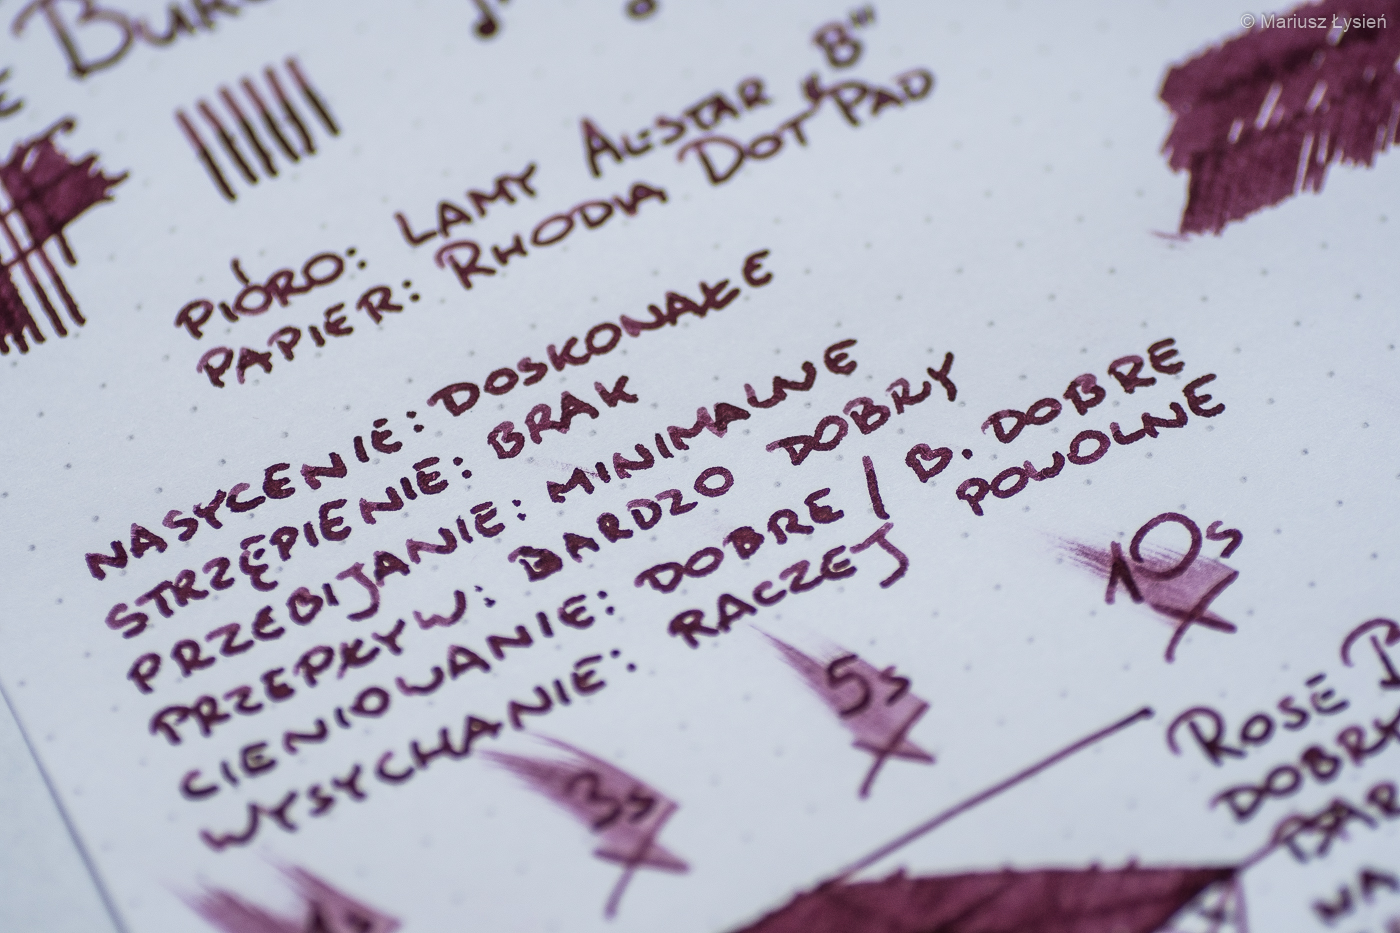 © Mariusz Łysień
PIÓRO: LAMY AL-STAR "B"
PAPIER: RHODIA DOT PAD
NASYCENIE: DOSKONAŁE
STRZĘPIENIE: BRAK
PRZEBIJANIE: MINIMALNE
PRZEPŁYW: BARDZO DOBRY
CIENIOWANIE: DOBRE / B. DOBRE
WYSYCHANIE: RACZEJ POWOLNE
1s
3s
5s
10s
ROSÉ
DOBRY
NA